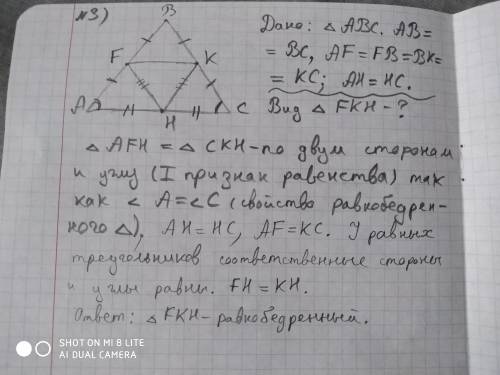 №3)
B
F
K
A
H
C
Дано: △ ABC. AB=
= BC, AF=FB=BK=
= KC; AH=HC.
Вид △ FKH - ?
△ AFH = △ CKH-по двум сторонам
и углу (I признак равенства) так
как < A=<C (свойство равнобедрен-
ного △), AH=HC, AF=KC. У равных
треугольников соответственные стороны
и углы равны. FH=KH.
Ответ: △ FKH-равнобедренный.
SHOT ON MI 8 LITE
AI DUAL CAMERA